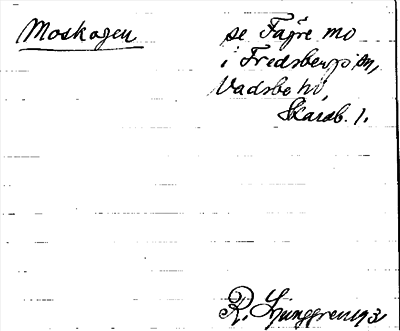 Moskogen se Fagre mo
i Fredsbergs sn,
Vadsbo hd,
Skarab. l.
R. Ljunggren 1931